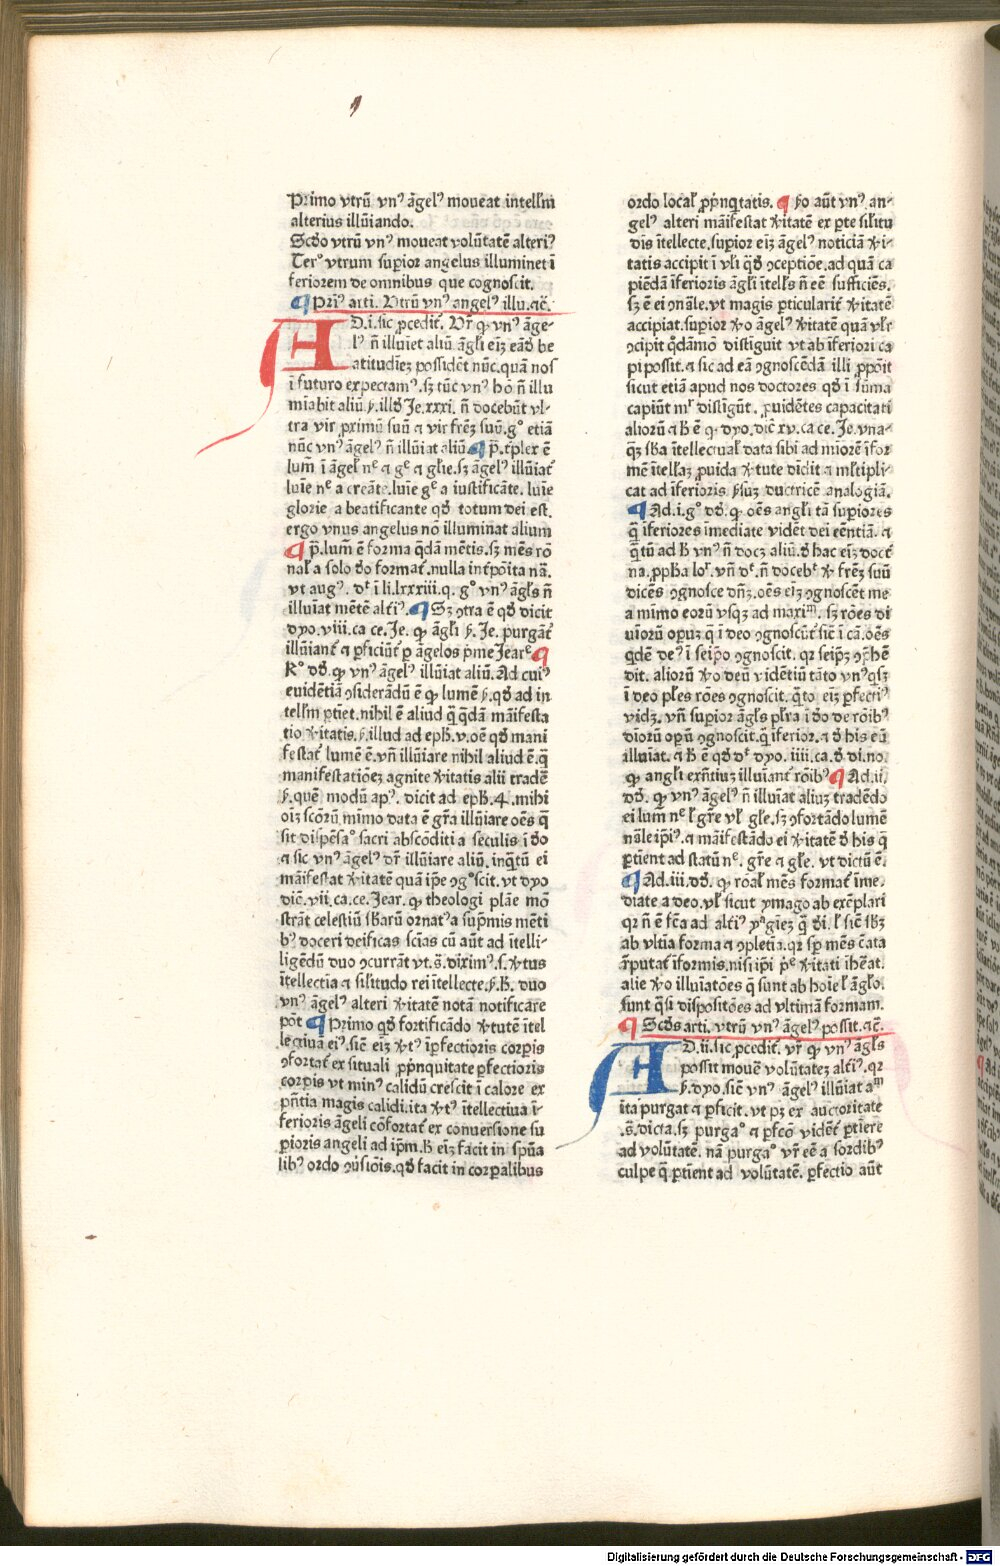 Primo vtrũ vnꝰ ãgelꝰ moueat intellm̃
alterius illũiando.
Scďo vtrũ vnꝰ moueat volũtatẽ alteriꝰ
Terº vtrum supior angelus illuminet ĩ
feriorem de omnibus que cognoscit.
¶ Priꝰ arti. Vtrũ vnꝰ angelꝰ illu.⁊c̃.
AD.i.sic pcedit̃. Vr̃ ꝙ vnꝰ ãge-
lꝰ ñ illuiet aliũ ãgl̃i eiꝫ eãď be
atitudieꝫ possidẽt nũc.quã nos
ĩ futuro expectamꝰ.sꝫ tũc vnꝰ hõ ñ illu
miabit aliũ ẜ.illď Je.xxxi. ñ docebũt vl-
tra vir ꝓximũ suũ ⁊ vir frẽꝫ suũ.gº etiã
nũc vnꝰ ãgelꝰ ñ illũiat aliũ ¶ p̃.tplex ẽ
lum̃ ĩ ãgel̃ nᵉ ⁊ gᵉ ⁊ gl̃ie.sꝫ ãgelꝰ illũiat̃
luĩe nᵉ a creãte.luĩe gᵉ a iustificãte. luĩe
glorie a beatificante qď totum dei est.
ergo vnus angelus nõ illuminat alium
¶ p̃.lum̃ ẽ forma qdã mẽtis.sꝫ mẽs rõ
nal̃ a solo ďo format̃.nulla int̃põita nã.
vt augꝰ. dʳ ĩ li.lxxxiii.q. gº vnꝰ ãgl̃s ñ
illuĩat mẽtẽ alt̃iꝰ. ¶ Sꝫ ꝯtra ẽ qď dicit
dyo.viii.ca ce.Je. ꝙ ãgl̃i ẜ. Je. purgãt̃
illũiant̃ ⁊ ꝑficiũt̃ ꝑ ãgelos pme Jearᵉ ¶
Rº dď.ꝙ vnꝰ ãgelꝰ illũiat aliũ. Ad cuiꝰ
euidẽtiã ꝯsiderãdũ ẽ ꝙ lumẽ ẜ.qď ad in
tellm̃ ptiet.nihil ẽ aliud q̃ qdã mãifesta
tio ꝟitatis.ẜ.illud ad eph̃.v.oẽ qď mani
festat̃ lumẽ ẽ.vñ illũiare nihil aliud ẽ.q̃
manifestatiõeꝫ agnite ꝟitatis alii tradẽ
ẜ.quẽ modũ apꝰ. dicit ad eph̃.4.mihi
oiꝫ scõrũ mimo data ẽ gr̃a illũiare oẽs q̃
sit dispẽsaº sacri abscõditi a seculis ĩ ďo
⁊ sic vnꝰ ãgelꝰ dr̃ illũiare aliũ. inq̃tũ ei
mãifestat ꝟitatẽ quã ip̃e ꝯgºscit.vt dyo
dic̃.vii.ca.ce.Jear. ꝙ theologi plãe mõ
strãt celestiũ sb̃arũ ornatꝰ a supmis mẽti
bꝰ doceri deificas scĩas cũ aũt ad ĩtelli-
ligẽdũ duo ꝯcurrãt vt.s̃.diximꝰ.s.ꝟtus
ĩtellectia ⁊ silitudo rei ĩtellecte.ẜ.h̃. duo
vnꝰ ãgelꝰ alteri ꝟitatẽ notã notificare
põt ¶ Primo qď fortificãdo ꝟtutẽ ĩtel
lectiua eiꝰ.sic̃ eiꝫ ꝟtꝰ ĩpfectioris corpis
ꝯfortat̃ ex situali ꝓpnquitate pfectioris
corpis vt minꝰ calidũ crescit ĩ calore ex
pñtia magis calidi.ita ꝟtꝰ ĩtellectiua ĩ-
ferioris ãgeli cõfortat̃ ex conuersione su
pioris angeli ad ip̃m.h̃ eiꝫ facit in sp̃ua
libꝰ ordo ꝯũsiõis.qď facit in corpalibus
ordo local̃ ꝓpnqtatis. ¶ ẜo aũt vnꝰ an-
gelꝰ alteri mãifestat ꝟitatẽ ex pte silitu
dis ĩtellecte.supior eiꝫ ãgelꝰ noticiã ꝟi-
tatis accipit ĩ vl̃i qďã ꝯceptiõe.ad quã ca
piẽdã ĩferioris ãgl̃i ĩtell̃s ñ eẽ sufficiẽs.
sꝫ ẽ ei ꝯnãle.vt magis pticularit̃ ꝟitatẽ
accipiat.supior ꝟo ãgelꝰ ꝟitatẽ quã vl̃r
ꝯcipit qďãmõ distiguit vt ab ĩferiori ca
pi possit.⁊ sic ad eã ꝯgnoscẽdã illi ꝓpõit
sicut etiã apud nos doctores qď ĩ sũma
capiũt mʳ distĩgũt. ꝓuidẽtes capacitati
aliorũ ⁊ h̃ ẽ ꝙ dyo.dic̃ xv.ca ce.Je.vna-
qꝫ sb̃a ĩtellectual̃ data sibi ad miorẽ ĩfor
mẽ ĩtell̃aꝫ ꝓuida ꝟtute diuidit ⁊ ml̃tipli-
cat ad ĩferioris ẜsuꝫ ductricẽ analogiã.
¶ Ad.i.gº dď.ꝙ oẽs angl̃i tã supiores
q̃ ĩferiores ĩmediate vidẽt dei eẽntiã. ⁊
q̃tũ ad h̃ vnꝰ ñ docꝫ aliũ.ď hac eiꝫ doct̃
na.ꝓph̃a loʳ. vñ dʳ.ñ docebᵗ ꝟ frẽꝫ suũ
dicẽs ꝯgnosce dñꝫ.oẽs eiꝫ ꝯgnoscẽt me
a mimo eorũ vsqꝫ ad maxiᵐ. sꝫ rões di
uiorũ operuꝫ q̃ ĩ deo ꝯgnoscũt̃ sic̃ ĩ cã.oẽs
qdẽ deꝰ ĩ seip̃o ꝯgnoscit. qr seip̃ꝫ ꝯp̃hẽ
dit. aliorũ ꝟo deũ vidẽtiũ tãto vnꝰqsꝫ
ĩ deo pl̃es rões ꝯgnoscit. q̃to eiꝫ pfectiꝰ
vidꝫ. vñ supior ãgl̃s pl̃ra ĩ ďo de rõibꝰ
diorũ opũ ꝯgnoscit.q̃ ĩferior.⁊ ď his eũ
illuĩat. ⁊ h̃ ẽ qď dʳ dyo. iiii.ca.ď di.no.
ꝙ angl̃i exñtiuꝫ illuiant̃ rõibꝰ ¶ Ad.ii.
dď. ꝙ vnꝰ ãgelꝰ ñ illuĩat aliuꝫ tradẽdo
ei lum̃ nᵉ l̃ gr̃e vl̃ gl̃e.sꝫ ꝯfortãdo lumẽ
nãle ip̃iꝰ.⁊ mãifestãdo ei ꝟitatẽ ď his q̃
ptient ad statũ nᵉ. gr̃e ⁊ gl̃e. vt dictũ ẽ.
¶ Ad.iii.dď. ꝙ rõal̃ mẽs format̃ ĩme.
diate a deo.vl̃ sicut ymago ab exẽplari
qr ñ ẽ fc̃a ad alt̃iꝰ yᵃgieꝫ q̃ ďi.l̃ sic̃ sb̃ꝫ
ab vltĩa forma ⁊ ꝯpletĩa.qr sp̃ mẽs c̃ata
r̃putat̃ ĩformis.nisi ip̃i pᵉ ꝟitati ĩheat̃.
alie ꝟo illuĩatões q̃ sunt ab hoĩe l̃ ãglo.
sunt q̃si dispositões ad vltimã formam.
¶ Scďs arti. vtrũ vnꝰ ãgelꝰ possit.⁊c̃.
AD.ii.sic pcedit̃. vr̃ ꝙ vnꝰ ãgl̃s
possit mouẽ volũtateꝫ alt̃iꝰ.qr
ẜ.dyo.sic̃ vnꝰ ãgelꝰ illũiat aᵐ
ita purgat ⁊ pficit. vt pꝫ ex auctoritate
.s̃.dicta.sꝫ purgaº ⁊ pfcõ vidẽt̃ ptiere
ad volũtatẽ. nã purgaº vr̃ eẽ a sordibꝰ
culpe q̃ ptient ad volũtatẽ. pfectio aũt
Digitalisierung gefördert durch die Deutsche Forschungsgemeinschaft - DFG